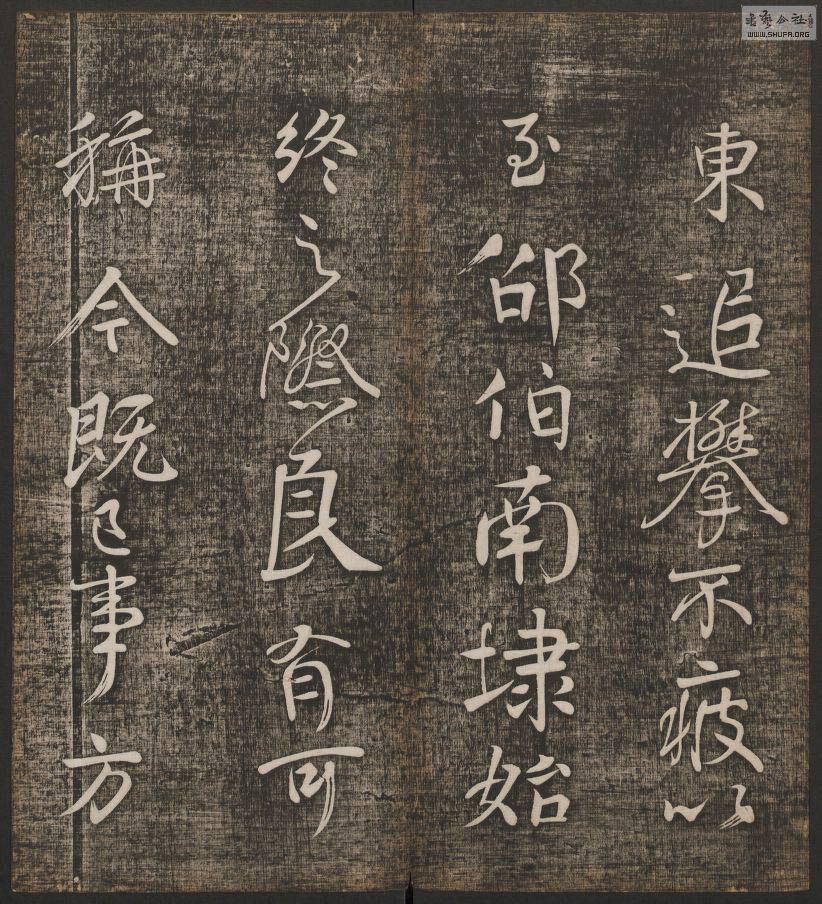 東追攀不疲以
至邵伯南埭始
終之際良有可
稱今既已事方
書藝公社
WWW.SHUFA.ORG